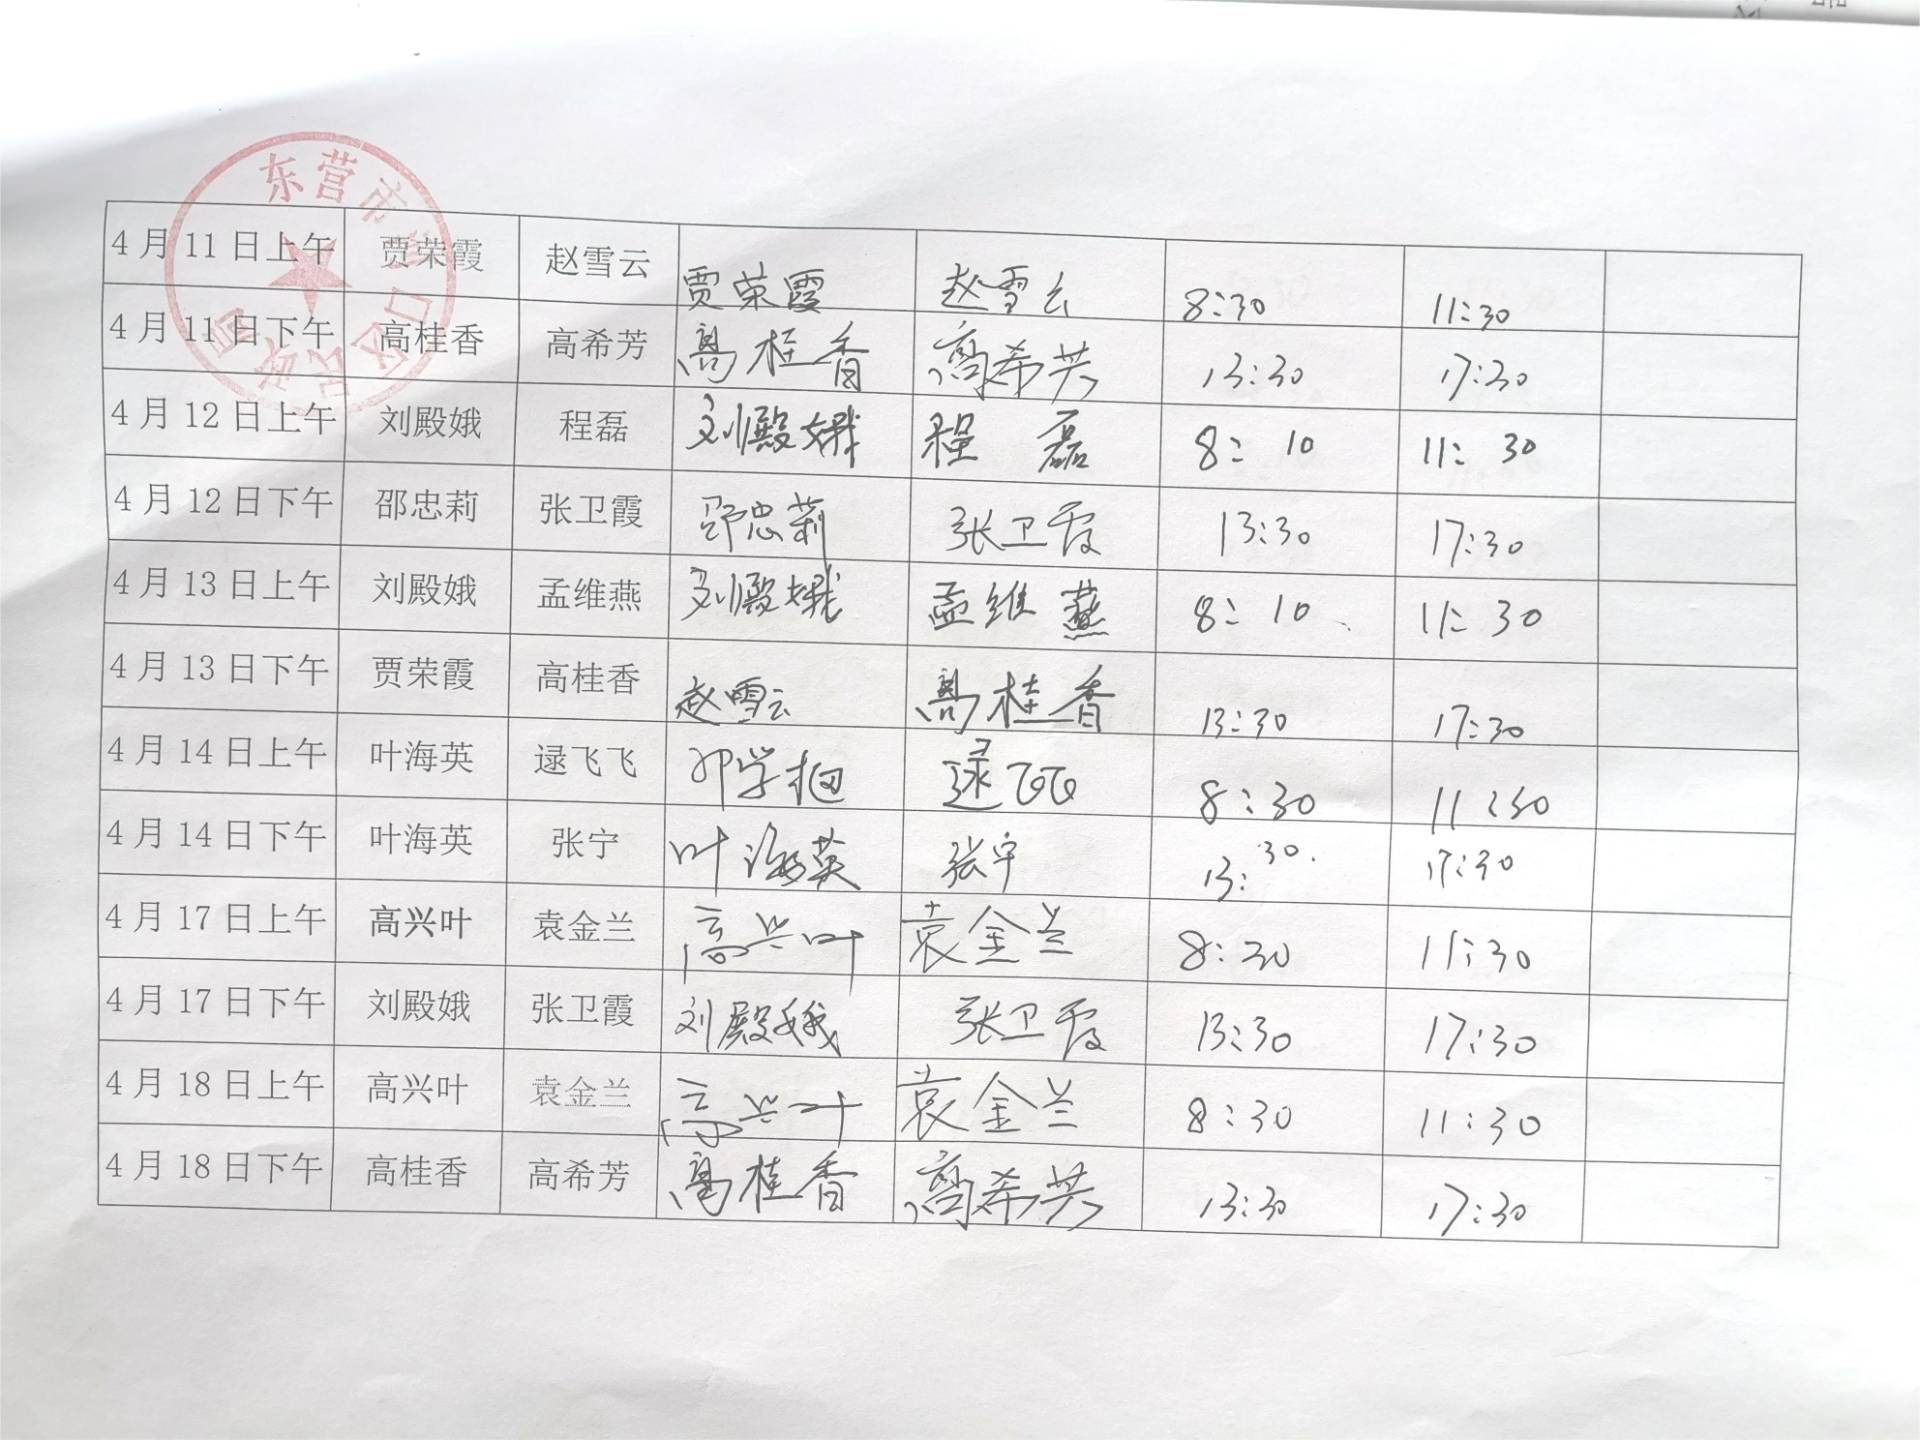 东营市河口区民政局
4月11日上午 贾荣霞 赵雪云 贾荣霞 赵雪云 8:30 11:30
4月11日下午 高桂香 高希芳 高桂香 高希芳 13:30 17:30
4月12日上午 刘殿娥 程磊 刘殿娥 程磊 8:10 11:30
4月12日下午 邵忠莉 张卫霞 邵忠莉 张卫霞 13:30 17:30
4月13日上午 刘殿娥 孟维燕 刘殿娥 孟维燕 8:10 11:30
4月13日下午 贾荣霞 高桂香 赵雪云 高桂香 13:30 17:30
4月14日上午 叶海英 逯飞飞 逯飞飞 8:30 11:30
4月14日下午 叶海英 张宁 叶海英 张宁 13:30. 17:30
4月17日上午 高兴叶 袁金兰 高兴叶 袁金兰 8:30 11:30
4月17日下午 刘殿娥 张卫霞 刘殿娥 张卫霞 13:30 17:30
4月18日上午 高兴叶 袁金兰 高兴叶 袁金兰 8:30 11:30
4月18日下午 高桂香 高希芳 高桂香 高希芳 13:30 17:30